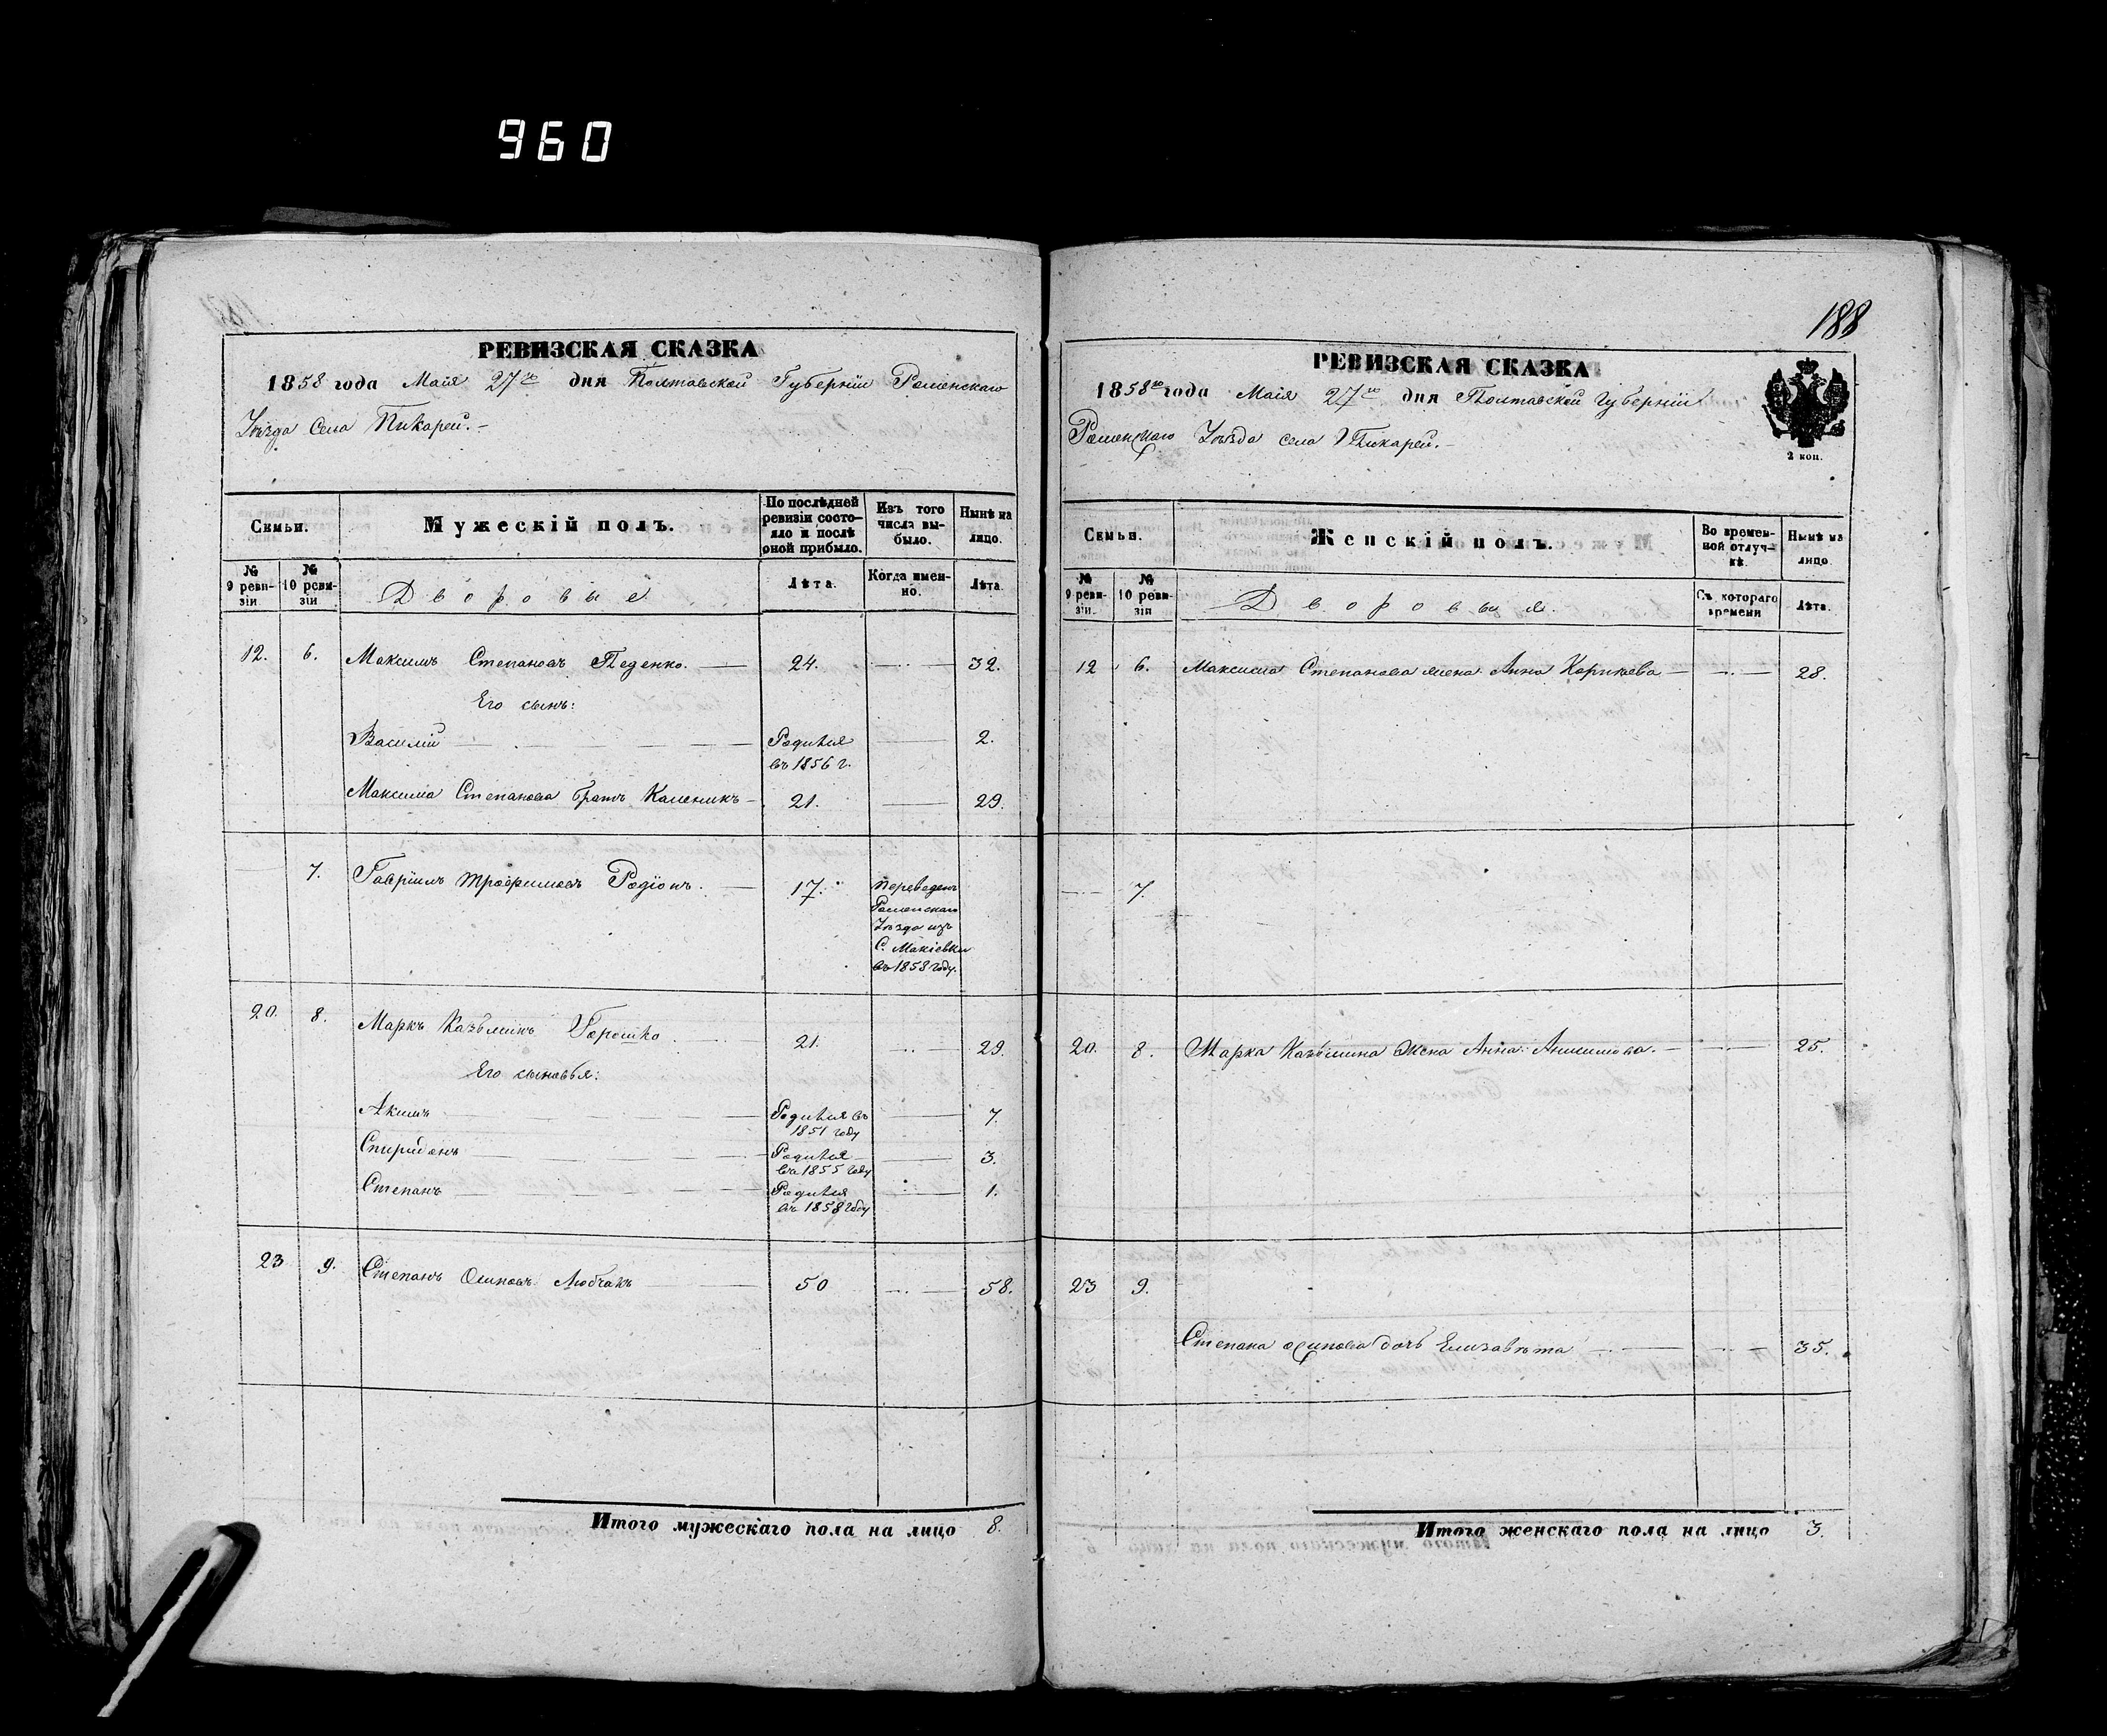 960
188
РЕВИЗСКАЯ СКАЗКА
1858 года Маія 27го дня Полтавской Губерніи Роменскаго
Уѣзда Села Пикарей.
Семьи.
Мужескій полъ.
По послѣдней ревизіи состояло и послѣ оной прибыло.
Изъ того числа выбыло.
Нынѣ на лицо.
№ 9 ревизіи
№ 10 ревизіи
Дворовые
Лѣта.
Когда именно.
Лѣта.
12. 6. Максимъ Степановъ Педенко. 24. 32.
Его сынъ:
Василій Родился 2.
въ 1856 г.
Максима Степанова братъ Каленикъ 21. 29.
7. Гавріилъ Трофимовъ Родіонъ. 17. переведенъ
Роменскаго
Уѣзда изъ
С. Макіевки
въ 1858 году.
20. 8. Маркъ Казьминъ Горошко 21. 29.
Его сыновья:
Акимъ Родился въ 7.
1851 году
Спиридонъ Родился 3.
въ 1855 году
Степанъ Родился 1.
въ 1858 году
23 9. Степанъ Осиповъ Любчакъ 50 58.
Итого мужескаго пола на лицо 8.
РЕВИЗСКАЯ СКАЗКА
1858го года Маія 27го дня Полтавской Губерніи
Роменскаго Уѣзда села Пикарей.
2 коп.
Семьи.
Женскій полъ.
Во временной отлучкѣ.
Нынѣ на лицо
№ 9 ревизіи.
№ 10 ревизіи
Дворовыя.
Съ котораго времени
Лѣта.
12 6. Максима Степанова жена Анна Карпѣева 28.
7.
20. 8. Марка Казьмина жена Анна Анисимова. 25.
23 9.
Степана осипова дочь Елизавѣта 35.
Итого женскаго пола на лицо 3.